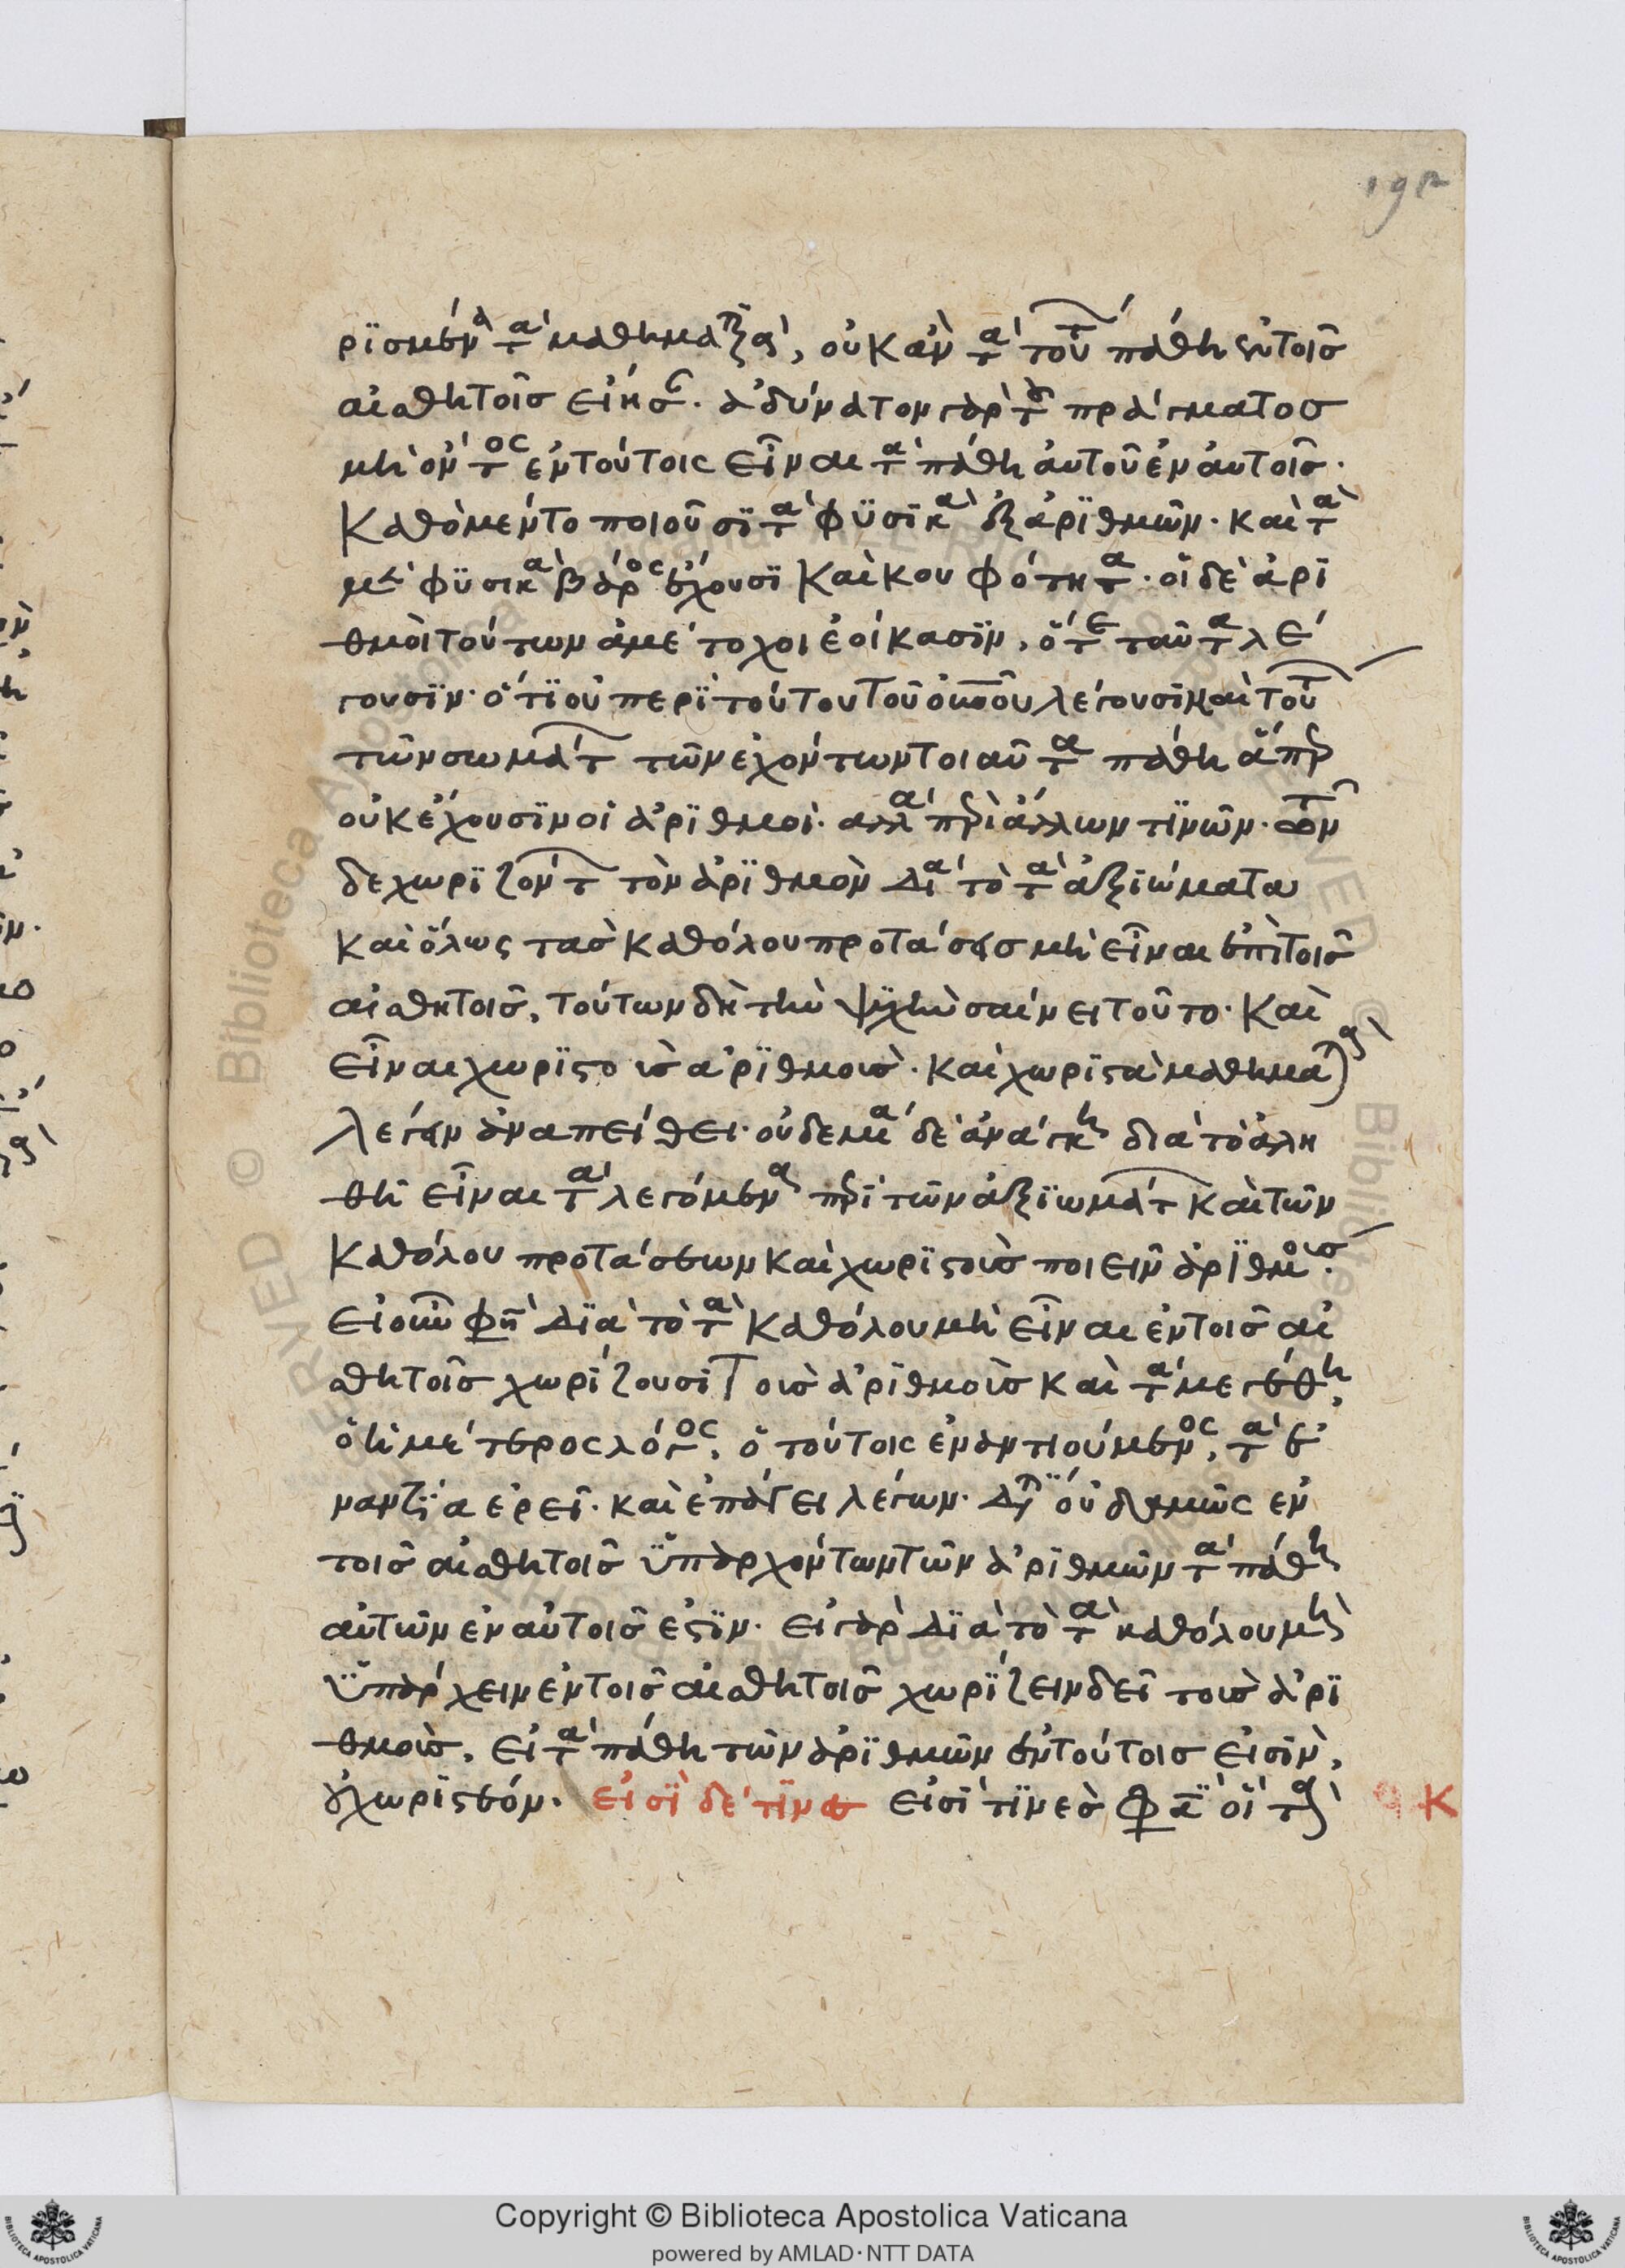 192
ρϊσμένα τὰ μαθηματικὰ, οὐκ ἂν τὰ τούτου πάθη ἐν τοῖς
αἰσθητοῖς εἴησαν. ἀδύνατον γὰρ τοῦ πράγματος
μὴ ὄντος ἐν τούτοις εἶναι τὰ πάθη αὐτοῦ ἐν αὐτοῖς.
Καθὸ μέντο ποιοῦσϊ τὰ φϋσϊκὰ ἐξ ἀρϊθμῶν. καὶ τὰ
μὲν φϋσικὰ βάρος ἔχουσϊ καὶ κουφότητα. οἱ δὲ ἀρϊ
θμοὶ τούτων ἀμέτοχοι ἐοίκασϊν, ὅτε ταῦτα λέ
γουσϊν. ὅτϊ οὐ περϊ τούτου τοῦ οὐρανοῦ λέγουσϊ καὶ τούτων
τῶν σωμάτων τῶν ἐχόντων τοιαῦτα πάθη ἅπερ
οὐκ ἔχουσϊν οἱ ἀρϊθμοί. ἀλλὰ περὶ ἄλλων τϊνῶν. τῶν
δὲ χωρϊζόντων τὸν ἀρϊθμὸν διὰ τὸ τὰ ἀξϊώματα
καὶ ὅλως τὰς καθόλου προτάσεις μὴ εἶναι ἐπὶ τοῖς
αἰσθητοῖς, τούτων δὴ τὴν ψϋχὴν σαίνει τοῦτο. καὶ
εἶναι χωρϊστοὺς ἀρϊθμοὺς. καὶ χωρϊστὰ μαθηματικὰ
λέγειν ἀναπείθει. οὐδεμία δὲ ἀνάγκη διὰ τὸ ἀλη
θῆ εἶναι τὰ λεγόμενα περὶ τῶν ἀξϊωμάτων καὶ τῶν
καθόλου προτάσεων καὶ χωρϊστοὺς ποιεῖν ἀρϊθμούς.
Εἰ οὖν φησὶ δϊὰ τὸ τὰ καθόλου μὴ εἶναι ἐν τοῖς αἰ
σθητοῖς χωρίζουσϊ τοὺς ἀρϊθμοὺς καὶ τὰ μεγέθη,
ὁ ἡμέτερος λόγος, ὁ τούτοις ἐναντιούμενος, τὰ ἐ
ναντϊα ἐρεῖ. καὶ ἐπάγει λέγων. διατί οὐδαμῶς ἐν
τοῖς αἰσθητοῖς ὑπαρχόντων τῶν ἀρϊθμῶν τὰ πάθη
αὐτῶν ἐν αὐτοῖς ἐστϊν. εἰ γὰρ δϊὰ τὸ τὰ καθόλου μὴ
ὑπάρχειν ἐν τοῖς αἰσθητοῖς χωρίζειν δεῖ τοὺς ἀρϊ
θμοὺς, εἰ τὰ πάθη τῶν ἀρϊθμῶν ἐν τούτοις εἰσὶν,
οὐ χωρϊστέον. εἰσϊ δέ τϊνες εἰσϊ τϊνὲς φασὶ οἳ τὰ
K
Copyright © Biblioteca Apostolica Vaticana
powered by AMLAD·NTT DATA